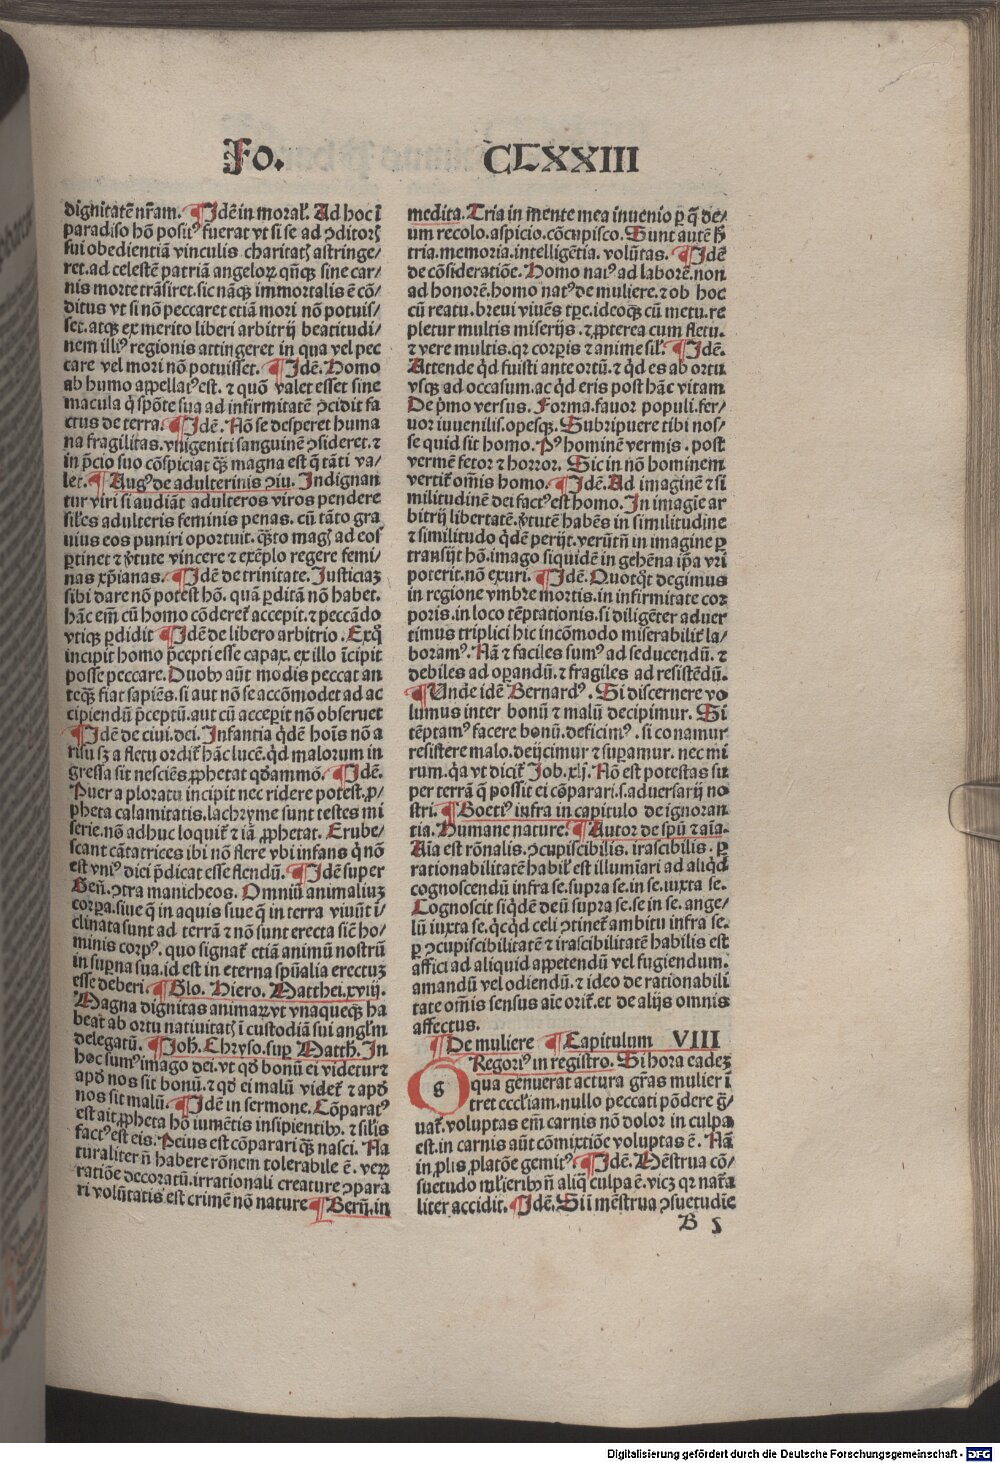 Fo. CLXXIII
dignitatē nr̄am. ¶ Idē in moral'. Ad hoc ī
paradiso hō positꝰ fuerat vt si se ad ꝯditorꝭ
sui obedientiā vinculis charitatꝭ astringe/
ret. ad celestē patriā angeloꝝ qn̄qꝫ sine car/
nis morte trāsiret. sic nāqꝫ immortalis ē cō/
ditus vt si nō peccaret etiā mori nō potuis/
set. atqꝫ ex merito liberi arbitrij beatitudi/
nem illiꝰ regionis attingeret in qua vel pec
care vel mori nō potuisset. ¶ Idē. Homo
ab humo appellatꝰ est. ⁊ quō valet esset sine
macula q̄ spōte sua ad infirmitatē ꝯcidit fa
ctus de terra. ¶ Idē. Nō se desperet huma
na fragilitas. vnigeniti sanguinē ꝯsideret. ⁊
in p̄cio suo cōspiciat qꝫ magna est q̄ tāti va/
let. ¶ Augꝰ de adulterinis ꝯiu. Indignan
tur viri si audiāt adulteros viros pendere
sil'es adulteris feminis penas. cū tāto gra
uius eos puniri oportuit. qꝫto magꝭ ad eos
ꝑtinet ⁊ v̓tute vincere ⁊ exēplo regere femi/
nas xp̄ianas. ¶ Idē de trinitate. Iusticiaꝫ
sibi dare nō potest hō. quā ꝑditā nō habet.
hāc em̄ cū homo cōderet᷑ accepit. ⁊ peccādo
vtiqꝫ ꝑdidit ¶ Idē de libero arbitrio. Ex q̊
incipit homo p̄cepti esse capax. ex illo īcipit
posse peccare. Duobꝰ aūt modis peccat an
teqꝫ fiat sapiēs. si aut nō se accōmodet ad ac
cipiendū p̄ceptū. aut cū acceꝑit nō obseruet
¶ Idē de ciui. dei. Infantia qd̄ē hoīs nō a
risu sꝫ a fletu ordit᷑ hāc lucē. qd̓ malorum in
gressa sit nesciēs. ꝓphetat qd̓āmō. ¶ Idē.
Puer a ploratu incipit nec ridere potest. ꝓ/
pheta calamitatis. lachryme sunt testes mi
serie. nō adhuc loquit᷑ ⁊ iā ꝓphetat. Erube/
scant cātatrices ibi nō flere vbi infans q̓ nō
est vniꝰ diei p̄dicat esse flendū. ¶ Idē super
Geñ. ꝯtra manicheos. Omniū animaliuꝫ
corꝑa. siue q̄ in aquis siue q̄ in terra viuūt ī/
clinata sunt ad terrā ⁊ nō sunt erecta siē ho/
minis corpꝰ. quo signat᷑ etiā animū nostrū
in suꝑna sua. id est in eterna spūalia erectuꝫ
esse deberi. ¶ Glo. Hiero. Matthei. xviij.
Magna dignitas animaꝝ. vt vnaqueqꝫ ha
beat ab ortu natiuitatꝭ ī custodiā sui angl'm
delegatū. ¶ Joh̄. Chryso. suꝑ Matth̄. In
hoc sumꝰ imago dei. vt qd̓ bonū ei videtur ⁊
apd̓ nos sit bonū. ⁊ qd̓ ei malū videt᷑ ⁊ apd̓
nos sit malū. ¶ Idē in sermone. Cōparatꝰ
est ait ꝓpheta hō iumētis insipientibꝰ. ⁊ sil'is
factꝰ est eis. Peius est cōparari qꝫ nasci. Na
turaliter n̄ habere rōnem tolerabile ē. veꝝ
ratiōe decoratū. irrationali creature ꝯpara
ri volūtatis est crimē nō nature ¶ Berñ. in
medita. Tria in mente mea inuenio ꝑ q̄ de/
um recolo. aspicio. cōcupisco. Sunt autē h̄
tria. memoria. intelligētia. volūtas. ¶ Idē
de cōsideratiōe. Homo natꝰ ad laborē. non
ad honorē. homo natꝰ de muliere. ⁊ ob hoc
cū reatu. breui viuēs tp̄e. ideoqꝫ cū metu. re
pletur multis miserijs. ⁊ ꝓpterea cum fletu.
⁊ vere multis. qꝛ corꝑis ⁊ anime sil'. ¶ Idē.
Attende qd̓ fuisti ante ortū. ⁊ qd̓ es ab ortu
vsqꝫ ad occasum. ac qd̓ eris post hāc vitam
De p̓mo versus. Forma. fauor populi. fer/
uor iuuenilis. opesqꝫ. Subripuere tibi nos/
se quid sit homo. Pꝰ hominē vermis. post
vermē fetor ⁊ horror. Sic in nō hominem
vertit᷑ om̄is homo. ¶ Idē. Ad imaginē ⁊ si
militudinē dei factꝰ est homo. In imagīe ar
bitrij libertatē. v̓tutē habēs in similitudine
⁊ similitudo qd̓ē perijt. verūtn̄ in imagine ꝑ
transijt hō. imago siquidē in gehēna ip̄a vri
poterit. nō exuri. ¶ Idē. Quotqt̓ degimus
in regione vmbre mortis. in infirmitate cor
poris. in loco tēptationis. si diligēter aduer
timus triplici hic incōmodo miserabilit᷑ la/
boramꝰ. Nā ⁊ faciles sumꝰ ad seducendū. ⁊
debiles ad oꝑandū. ⁊ fragiles ad resistēdū.
¶ Unde idē Bernardꝰ. Si discernere vo
lumus inter bonū ⁊ malū decipimur. Si
tēptamꝰ facere bonū. deficimꝰ. si conamur
resistere malo. deijcimur ⁊ suꝑamur. nec mi
rum. q̓a vt dicit᷑ Job. xlj. Nō est potestas su
per terrā q̄ possit ei cōparari. s. aduersarij no
stri. ¶ Boetiꝰ infra in capitulo de ignoran
tia. Humane nature. ¶ Autor de spū ⁊ aīa.
Aīa est rōnalis. ꝯcupiscibilis. irascibilis. ꝑ
rationabilitatē habil' est illumīari ad aliqd̓
cognoscendū infra se. supra se. in se. iuxta se.
Cognoscit siqd̓ē deū supra se. se in se. ange/
lū iuxta se. q̓cqd̓ celi ꝯtinet᷑ ambitu infra se.
ꝑ ꝯcupiscibilitatē ⁊ irascibilitatē habilis est
affici ad aliquid appetendū vel fugiendum.
amandū vel odiendū. ⁊ ideo de rationabili
tate om̄is sensus aīe orit᷑. et de alijs omnis
affectus.
¶ De muliere ¶ Capitulum VIII
g Regoriꝰ in registro. Si hora eadeꝫ
qua genuerat actura gr̄as mulier ī
tret eccl'iam. nullo peccati pōdere g̃/
uat᷑. voluptas em̄ carnis nō dolor in culpa
est. in carnis aūt cōmixtiōe voluptas ē. Nā
in ꝓlis ꝓlatōe gemitꝰ. ¶ Idē. Mēstrua cō/
suetudo ml'ieribꝰ n̄ aliq̄ culpa ē. vicꝫ qꝛ nat᷑a
liter accidit. ¶ Idē. Si ī mēstrua ꝯsuetudīe
B 5
Digitalisierung gefördert durch die Deutsche Forschungsgemeinschaft - DFG